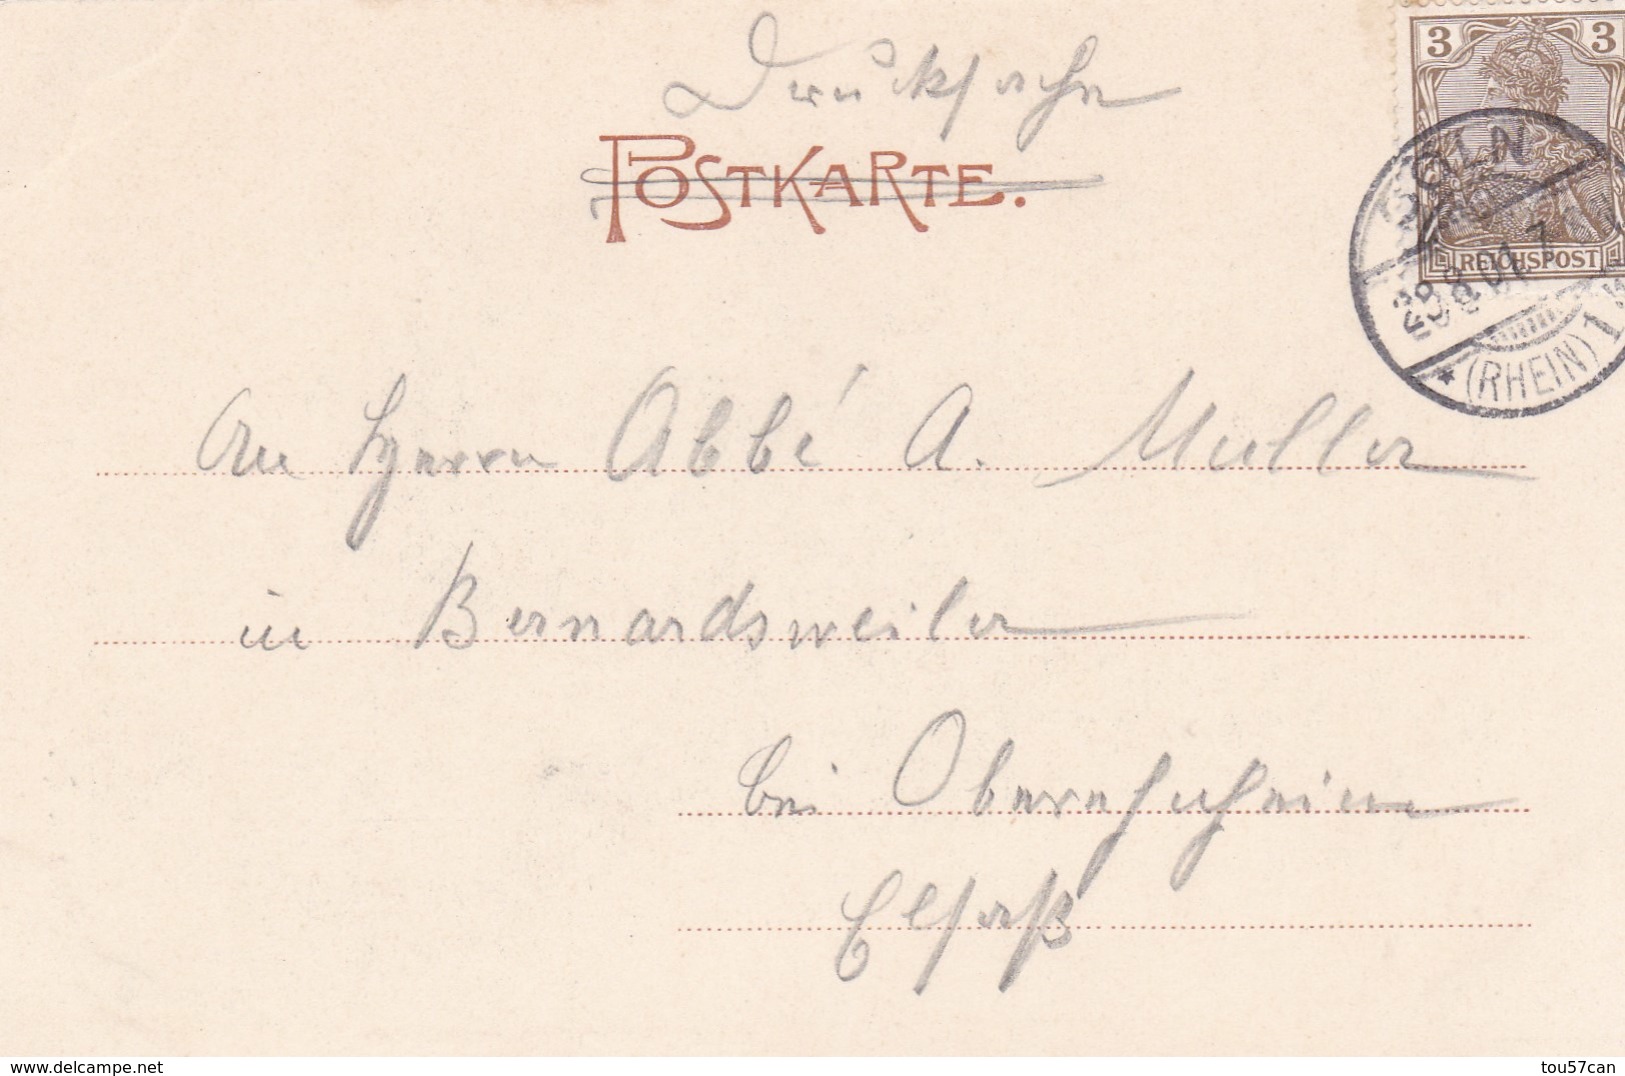 Drucksache
POSTKARTE.
3 3
REICHSPOST
CÖLN
29.8.01. 7
* (RHEIN) 1
An Herrn Abbé A. Muller
in Bernardsweiler
bei Oberehnheim
Elsaß
tou57can